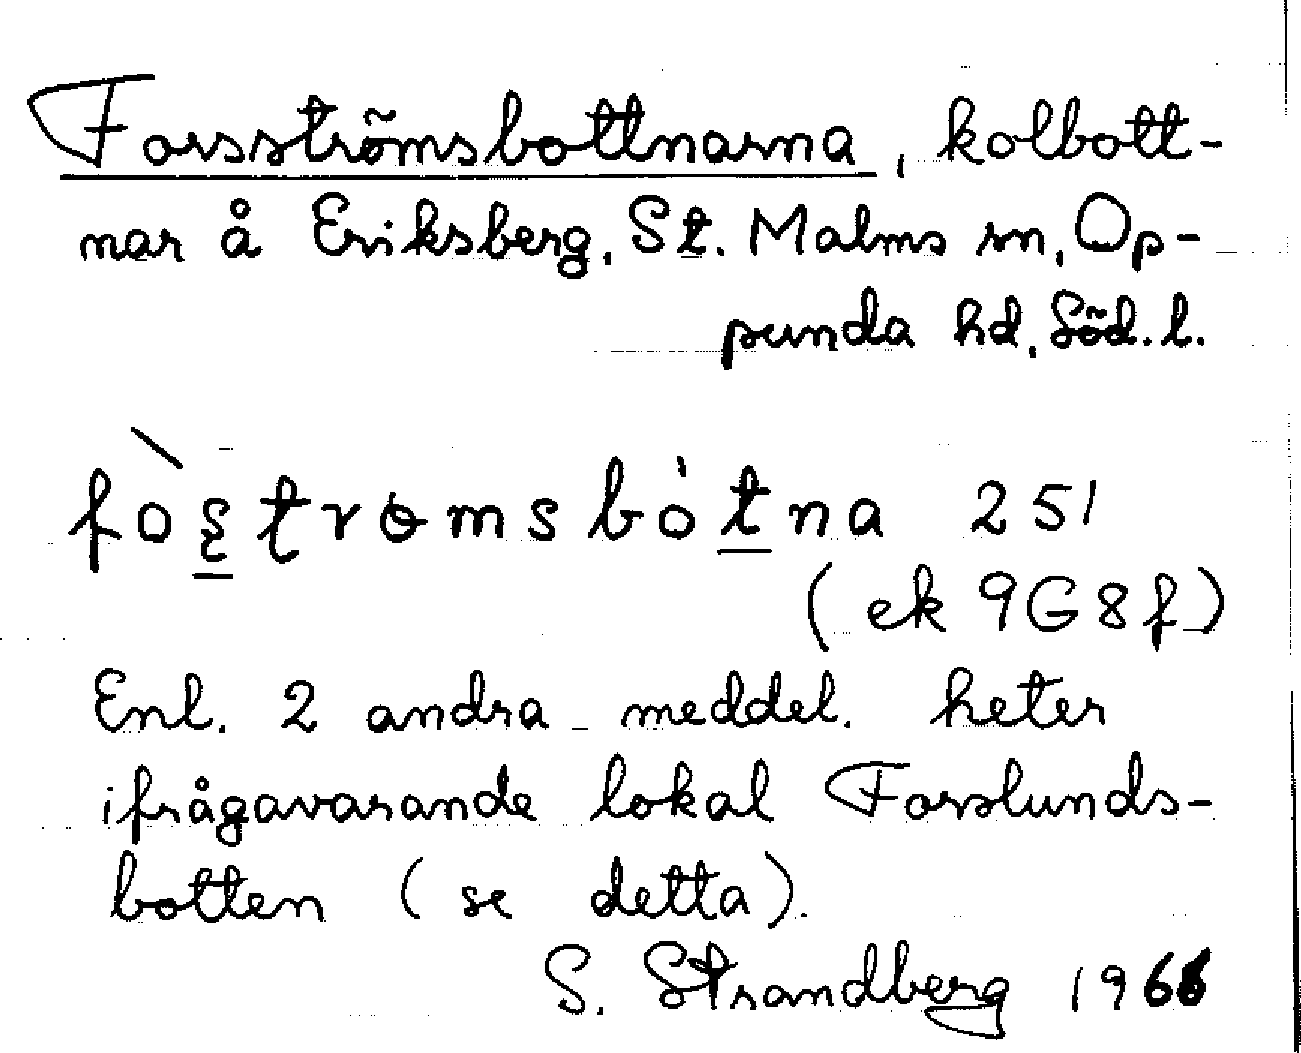 Forsströmsbottnarna, kolbott-
nar å Eriksberg, St. Malms sn, Op-
punda hd, Söd. l.
fò̀ʂtrømsbòtna 251
(ek 9G8f)
Enl. 2 andra meddel. heter
ifrågavarande lokal Forslunds-
botten (se detta).
S. Strandberg 1966